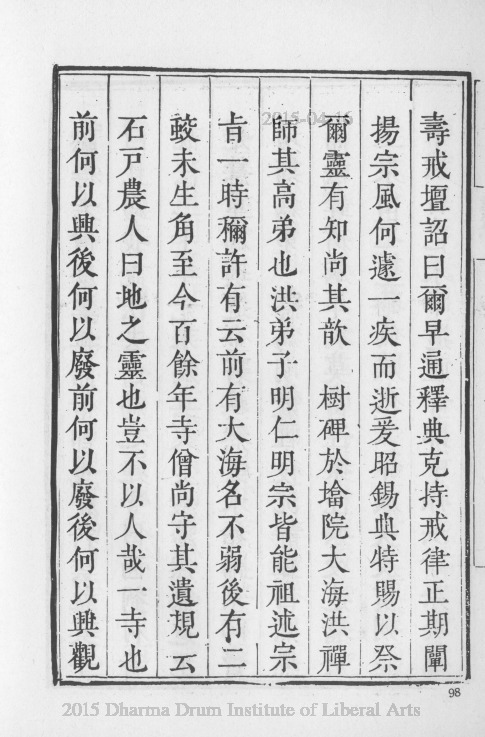 壽戒壇詔曰爾早通釋典克持戒律正期闡
揚宗風何遽一疾而逝爰昭錫典特賜以祭
爾靈有知尚其歆　樹碑於墖院大海洪禪
師其高弟也洪弟子明仁明宗皆能祖述宗
旨一時稱許有云前有大海名不弱後有二
蛟未生角至今百餘年寺僧尚守其遺規云
石戸農人曰地之靈也豈不以人哉一寺也
前何以興後何以廢前何以廢後何以興觀
2015-04-16
98
2015 Dharma Drum Institute of Liberal Arts